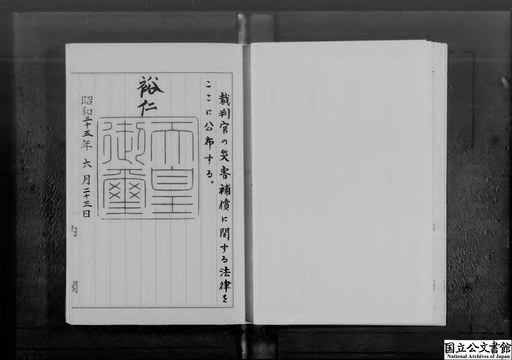 裁判官の災害補償に関する法律を
ここに公布する。
裕仁
天皇
御璽
昭和三十五年六月二十三日
内閣
国立公文書館
National Archives of Japan